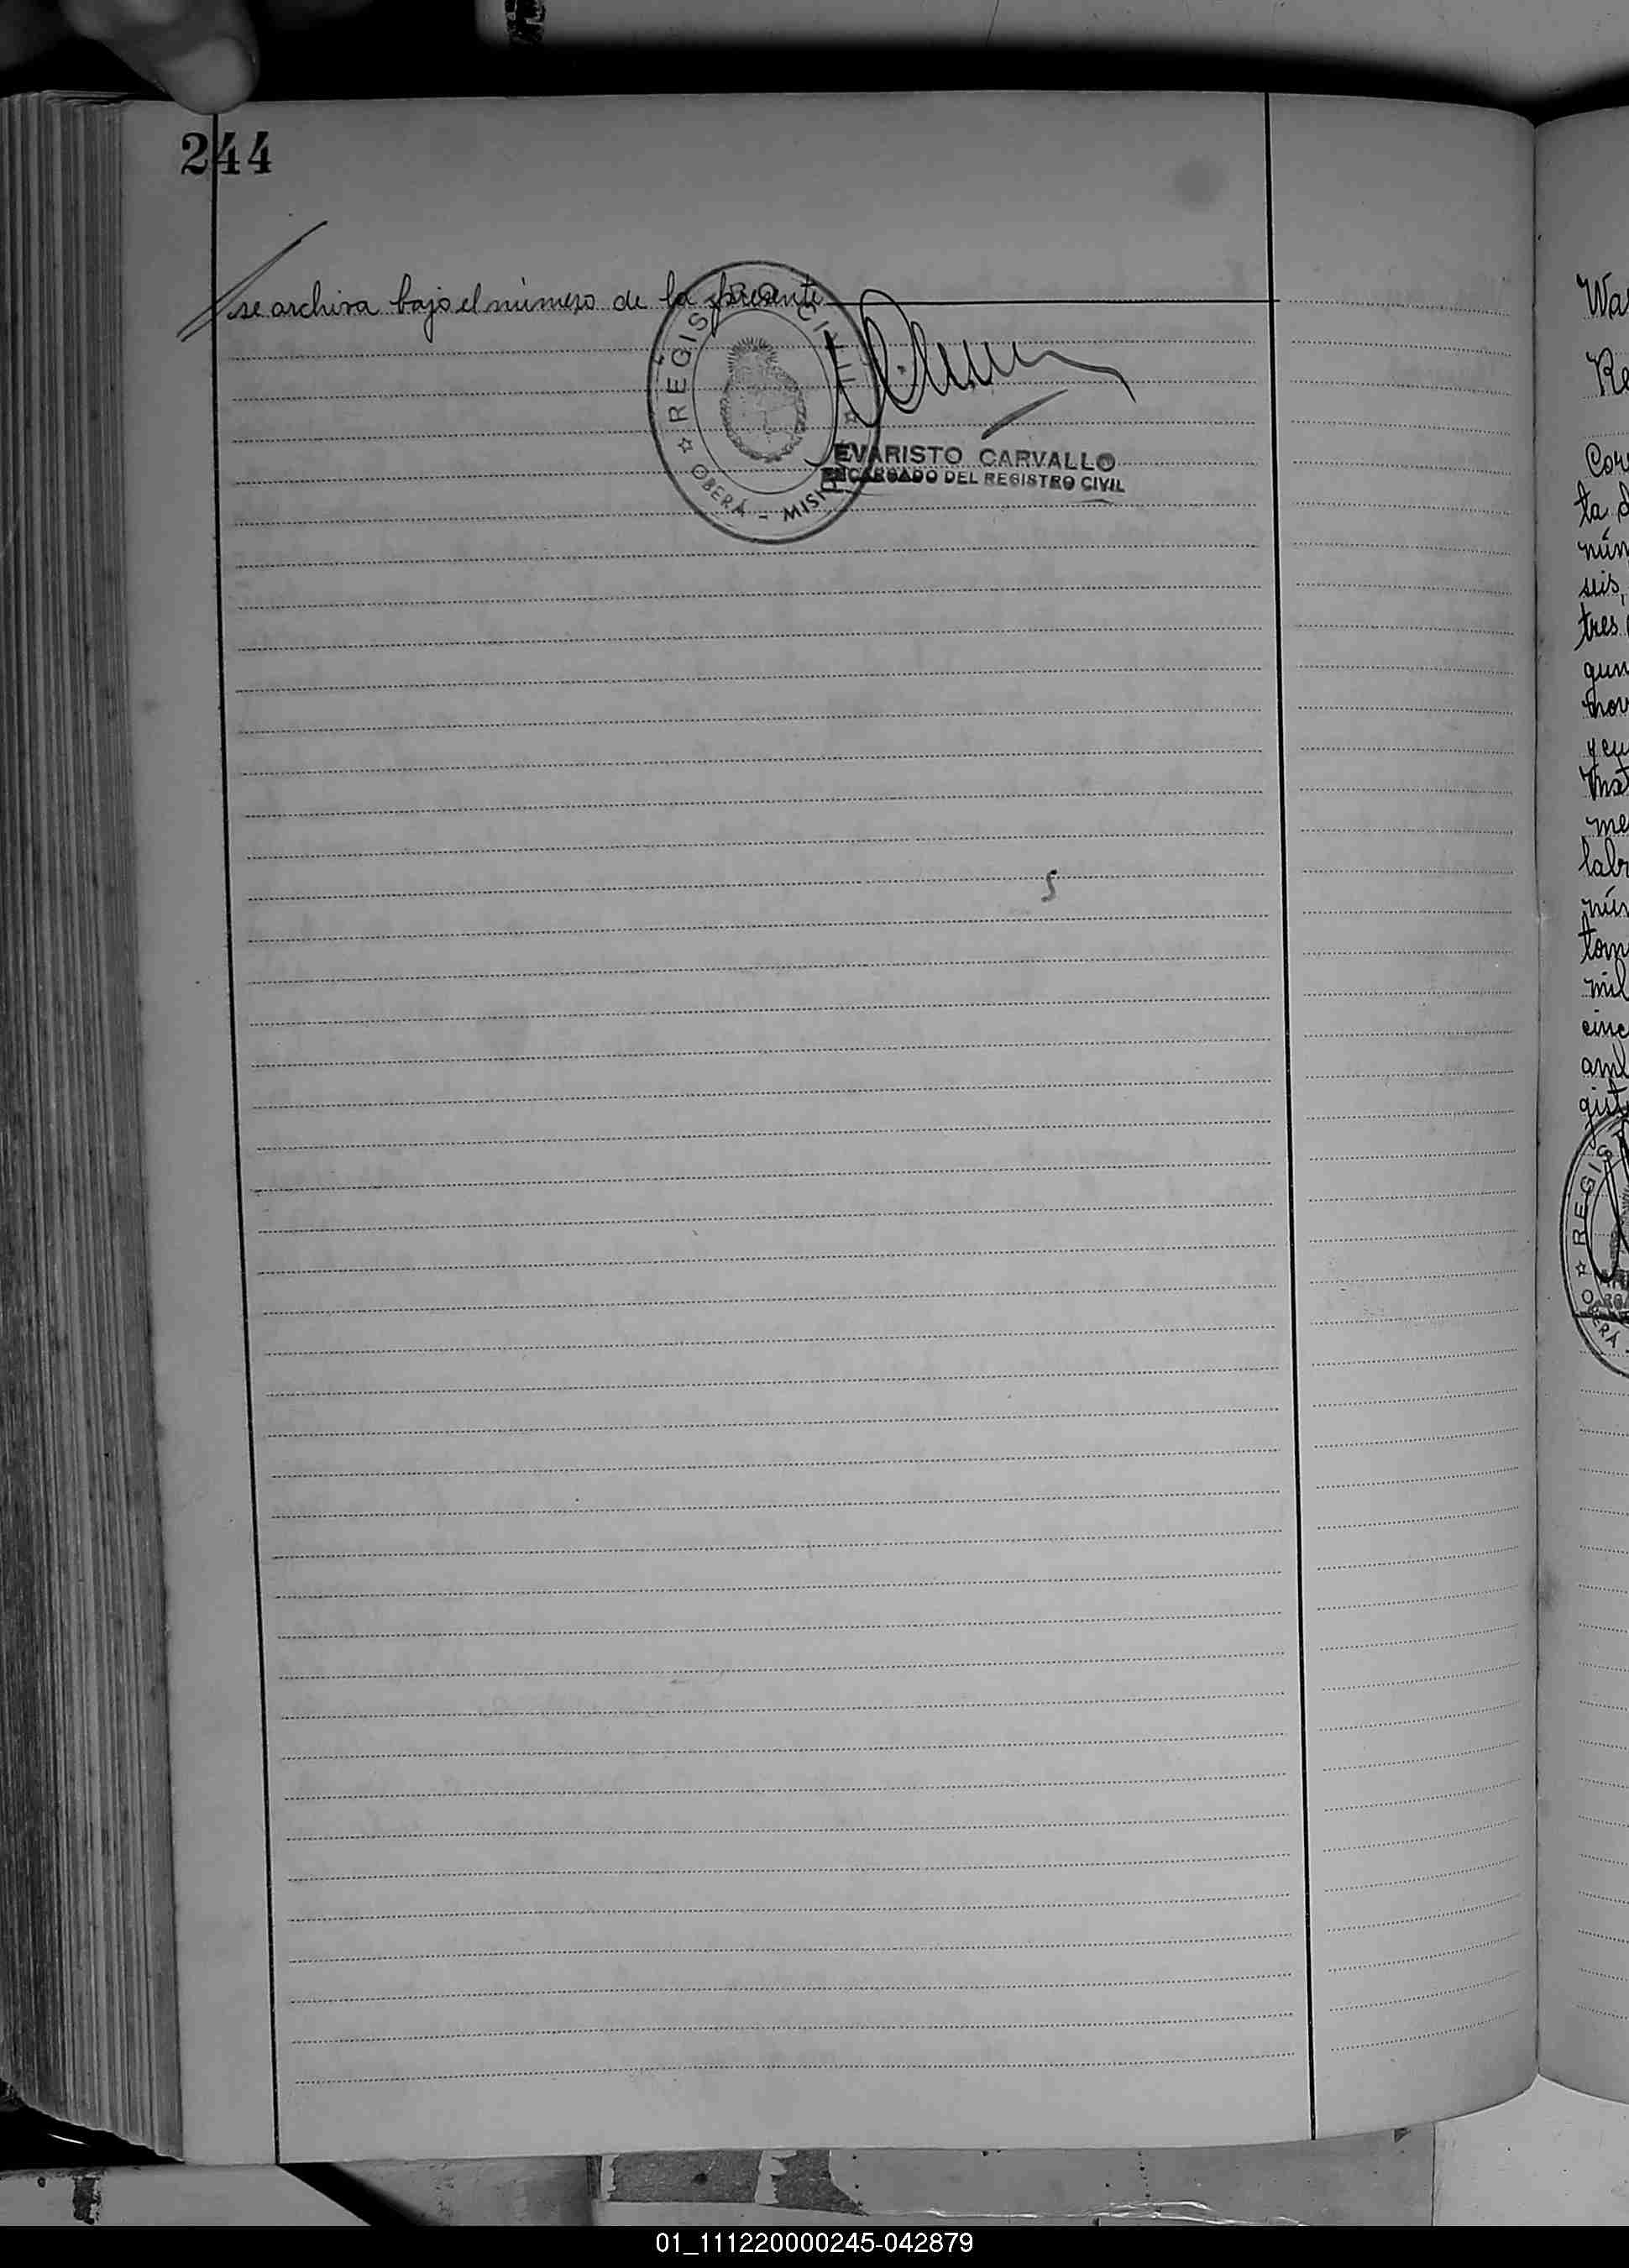 244
se archiva bajo el número de la presente
REGISTRO CIVIL
OBERÁ - MISIONES
EVARISTO CARVALLO
ENCARGADO DEL REGISTRO CIVIL
Wa
Re
ta d
núm
seis,
tres
mil
REGIST
OBERÁ -
01_111220000245-042879